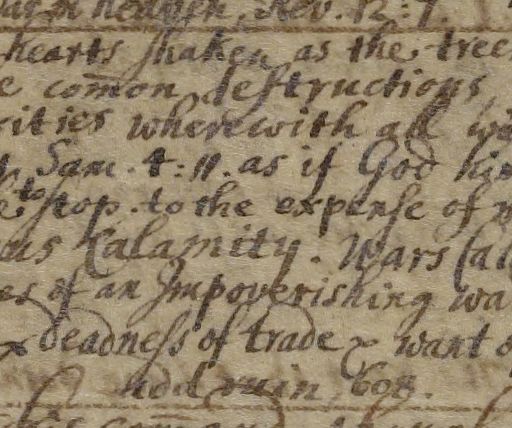 Heaven, Rev. 12:7.
hearts shaken as the tree
e com̄on destructions,
ities wherewith all
Sam. 4:11. as if God him
to
stop to the expense of
us Calamity. Wars
es of an Impoverishing wa
& deadness of trade & want o
add ruin, 608.